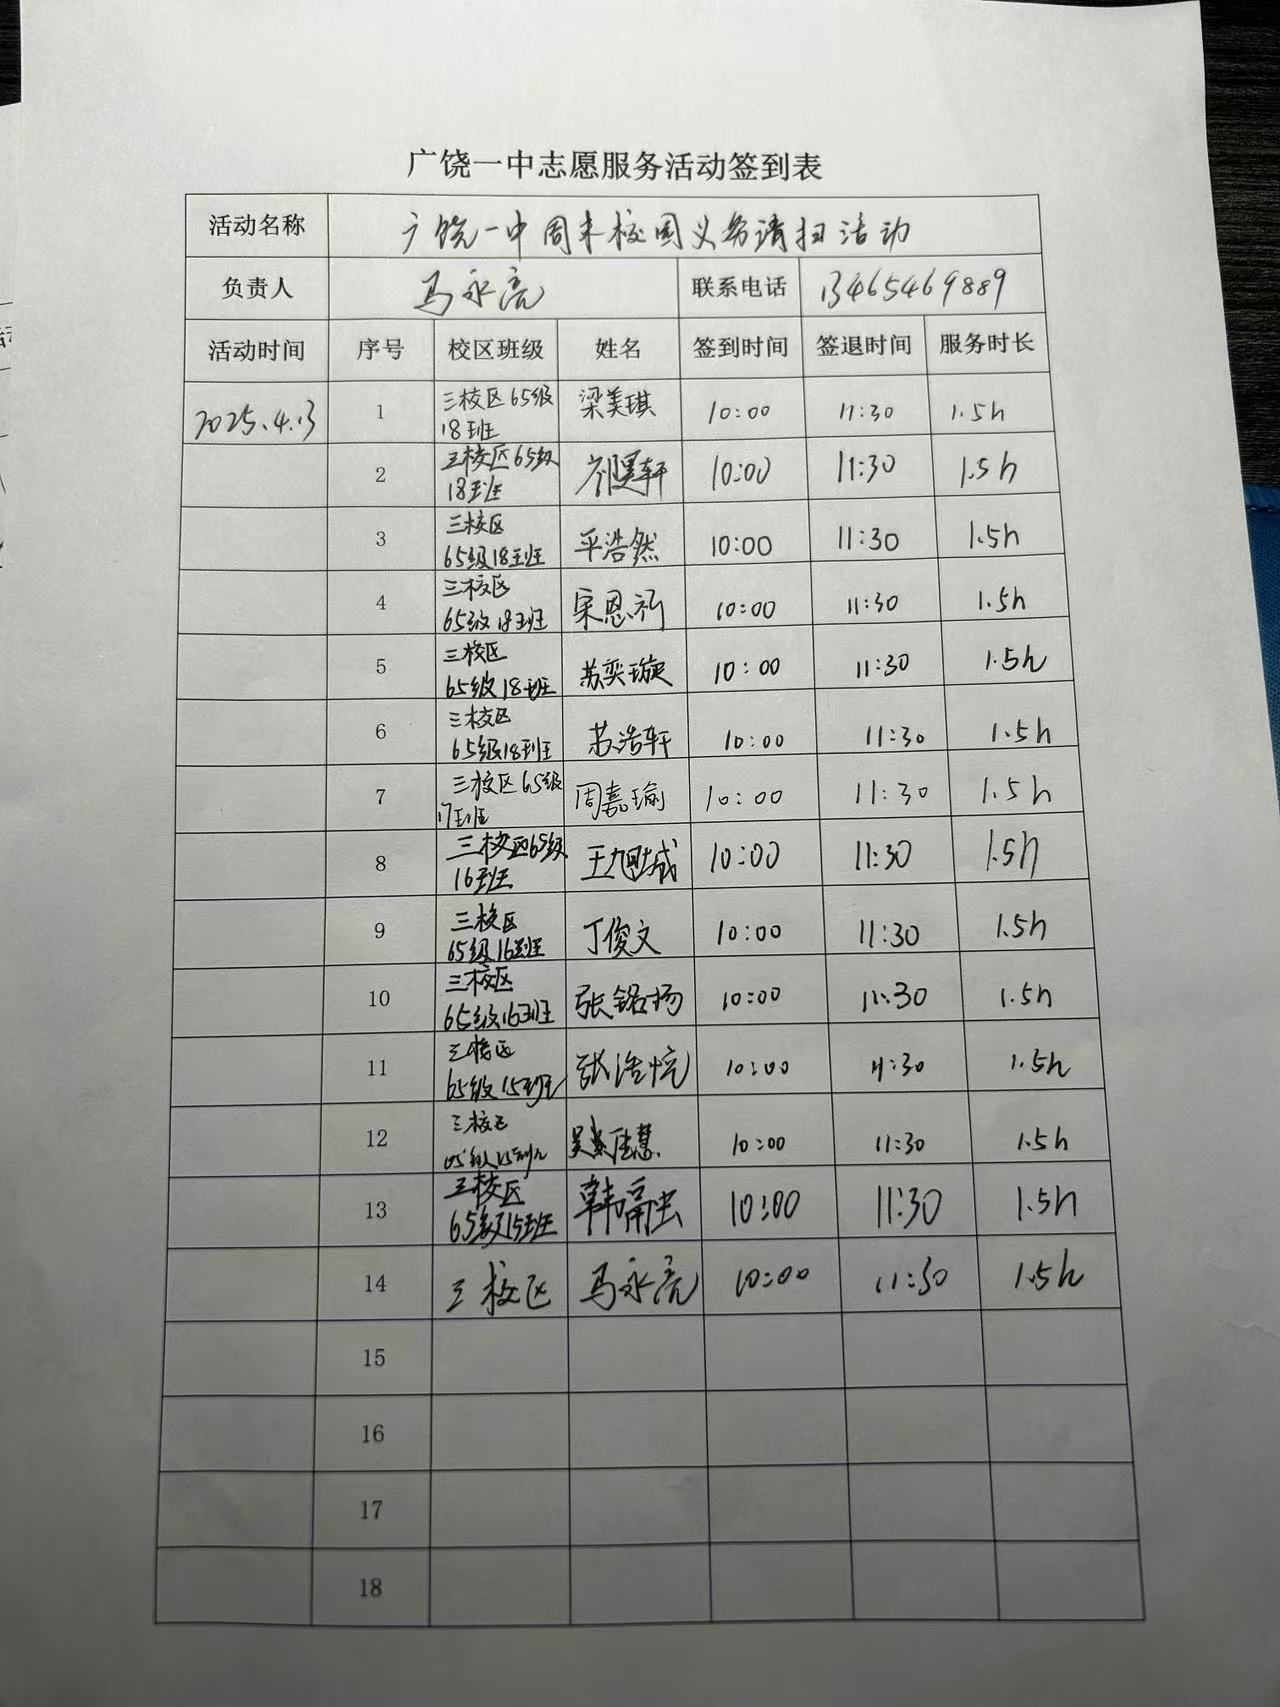 广饶一中志愿服务活动签到表
活动名称 广饶一中周末校园义务清扫活动
负责人 马永亮 联系电话 13465469889
活动时间 序号 校区班级 姓名 签到时间 签退时间 服务时长
2025.4.13 1 三校区65级18班 梁美琪 10:00 11:30 1.5h
2 三校区65级18班 10:00 11:30 1.5h
3 三校区65级18班 平浩然 10:00 11:30 1.5h
4 三校区65级18班 宋恩礼 10:00 11:30 1.5h
5 三校区65级18班 苏奕璇 10:00 11:30 1.5h
6 三校区65级18班 苏浩轩 10:00 11:30 1.5h
7 三校区65级17班 周嘉瑜 10:00 11:30 1.5h
8 三校区65级16班 王旭成 10:00 11:30 1.5h
9 三校区65级16班 丁俊文 10:00 11:30 1.5h
10 三校区65级16班 张铭扬 10:00 11:30 1.5h
11 三校区65级15班 张浩恺 10:00 11:30 1.5h
12 三校区65级15班 10:00 11:30 1.5h
13 三校区65级15班 韩 10:00 11:30 1.5h
14 三校区 马永亮 10:00 11:30 1.5h
15
16
17
18